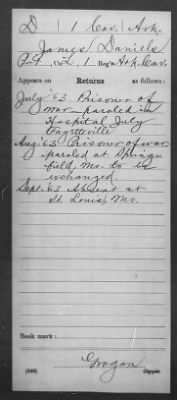 D | 1 Cav. | Ark.
James Daniels
Pvt, Co. , 1 Reg't Ark. Cav.
Appears on Returns as follows:
July '63 Prisoner of
war paroled in
Hospital July
Fayetteville
Aug. '63 Prisoner of war
paroled at Spring
field, Mo. to be
exchanged.
Sept. 63 Absent at
St Louis, Mo.
Book mark:
Grogan
(546) Copyist.